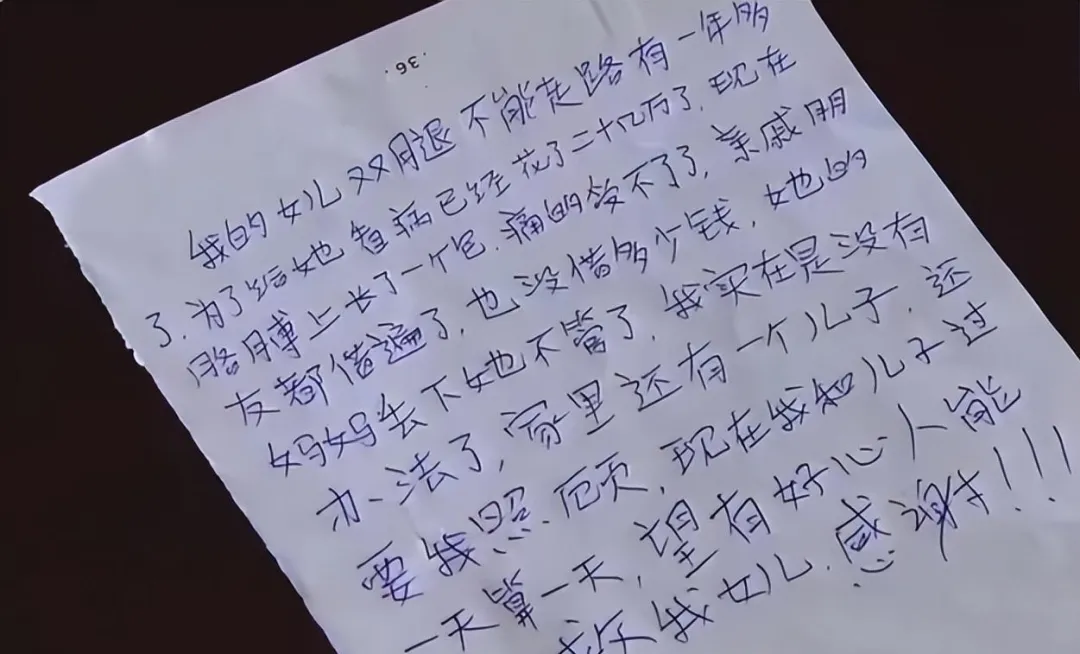 .36.
我的女儿双腿不能走路有一年多
了.为了给她看病已经花了二十几万了.现在
胳膊上长了一个包.痛的受不了了,亲戚朋
友都借遍了,也没借多少钱,她的
妈妈丢下她也不管了.我实在是没有
办法了,家里还有一个儿子.还
要我照顾,现在我和儿子过
一天算一天,望有好心人能
我女儿.感谢!!!